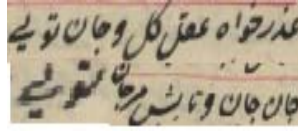 عذرخواه عقل کل و جان تویی
جان جان و تابش مرجان تویی